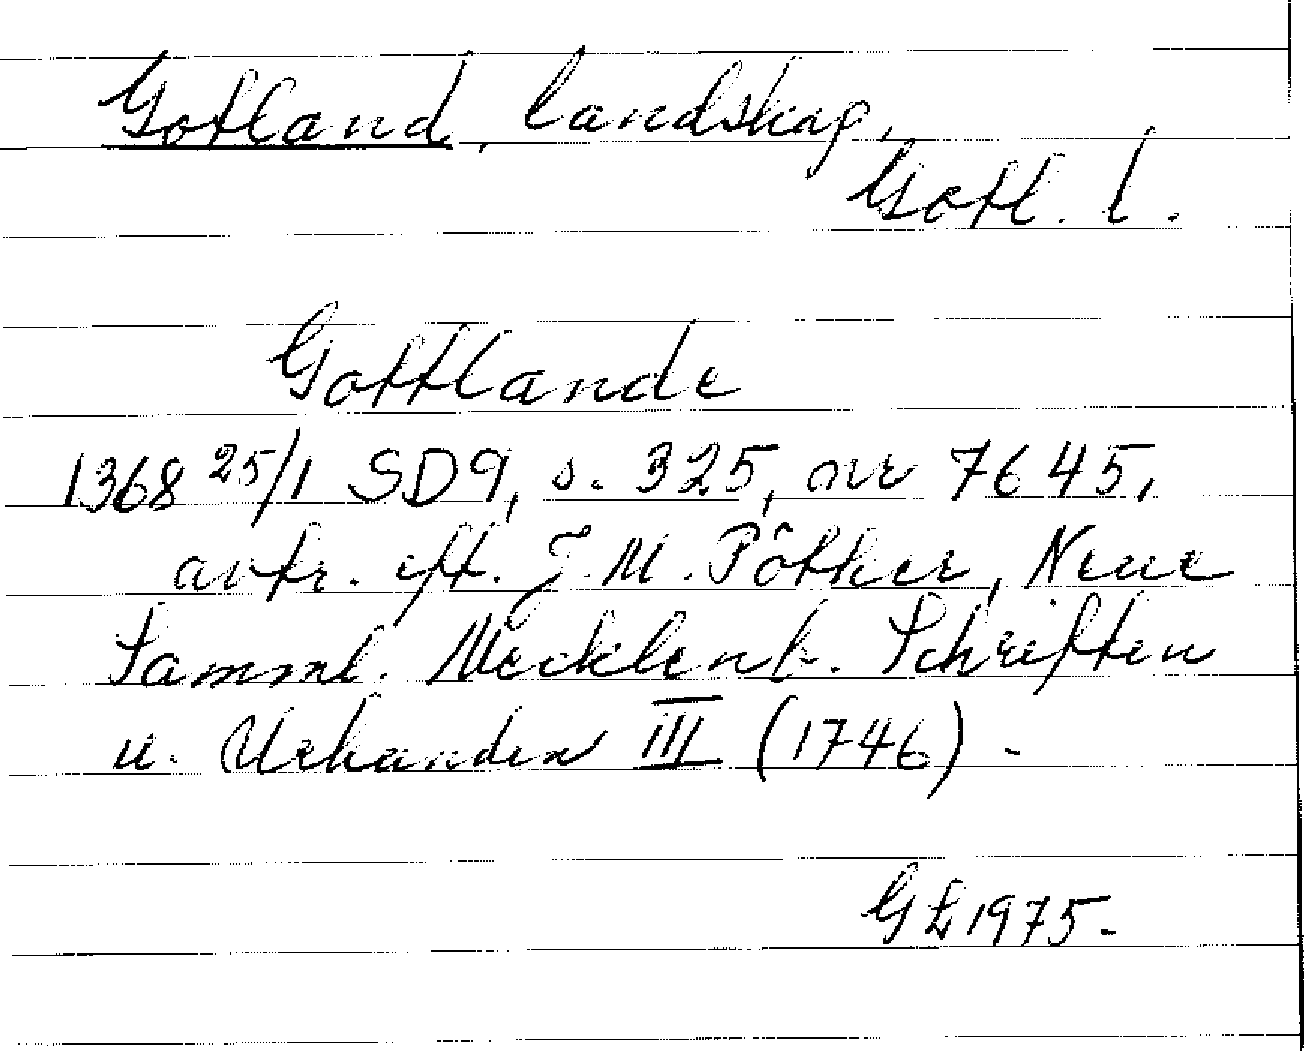 Gotland, landskap,
Gotl. l.
Gottlande
1368 25/1 SD9, s. 325, nr 7645,
avtr. eft. J. M. Pötker, Neue
Samml. Mecklenb. Schriften
u. Urkunden III (1746).
GL 1975.